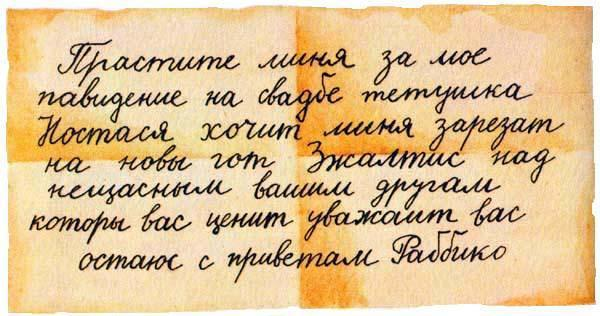 Прастите миня за мое
павидение на свадбе тетушка
Настася хочит миня зарезат
на новы гот Зжалтис над
нещасным вашим другам
которы вас ценит уважаит вас
остаюс с приветам Раббико